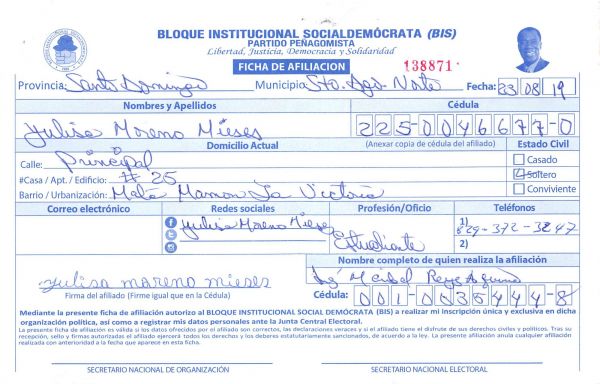 BLOQUE INSTITUCIONAL SOCIALDEMÓCRATA (BIS)
PARTIDO PEÑAGOMISTA
Libertad, Justicia, Democracia y Solidaridad
FICHA DE AFILIACION 138871
Provincia: Santo Domingo Municipio: Sto. Dgo. Norte Fecha: 23 08 19
Nombres y Apellidos Cédula
Yulisa Moreno Mieses 225-0046677-0
Domicilio Actual (Anexar copia de cédula del afiliado) Estado Civil
Calle: Principal Casado
#Casa / Apt. / Edificio: # 25 Soltero
Barrio / Urbanización: Mata Mamon La Victoria Conviviente
Correo electrónico Redes sociales Profesión/Oficio Teléfonos
Yulisa Moreno Mieses Estudiante 1) 829-372-3247
2)
Nombre completo de quien realiza la afiliación
yulisa moreno mieses
Firma del afiliado (Firme igual que en la Cédula) Cédula: 001-0035444-8
Mediante la presente ficha de afiliación autorizo al BLOQUE INSTITUCIONAL SOCIAL DEMÓCRATA (BIS) a realizar mi inscripción única y exclusiva en dicha
organización política, así como a registrar mis datos personales ante la Junta Central Electoral.
La presente ficha de afiliación es válida si los datos ofrecidos por el afiliado son correctos, las declaraciones veraces y si el afiliado tiene el disfrute de sus derechos civiles y políticos. Tras su
recepción, sello y firmas autorizadas el afiliado ejercerá todos los derechos y los deberes estatutariamente sancionados, de acuerdo a la ley. La presente afiliación anula cualquier afiliación
realizada con anterioridad a la fecha que aparece en esta ficha.
SECRETARIO NACIONAL DE ORGANIZACIÓN SECRETARIO NACIONAL ELECTORAL